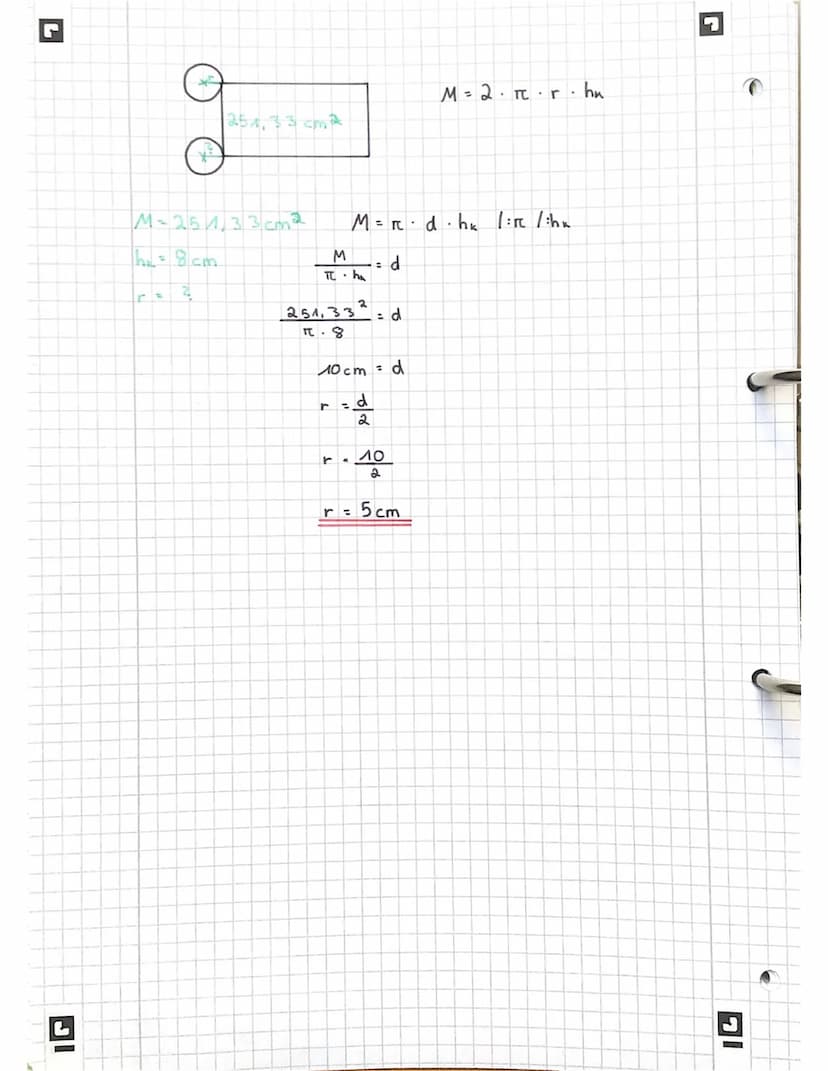 M = 2 · π · r · hₖ
251,33 cm²
M = 251,33 cm²
hₖ = 8 cm
r = ?
M = π · d · hₖ /:π /:hₖ
M / π · hₖ = d
251,33² / π · 8 = d
10 cm = d
r = d / 2
r = 10 / 2
r = 5 cm